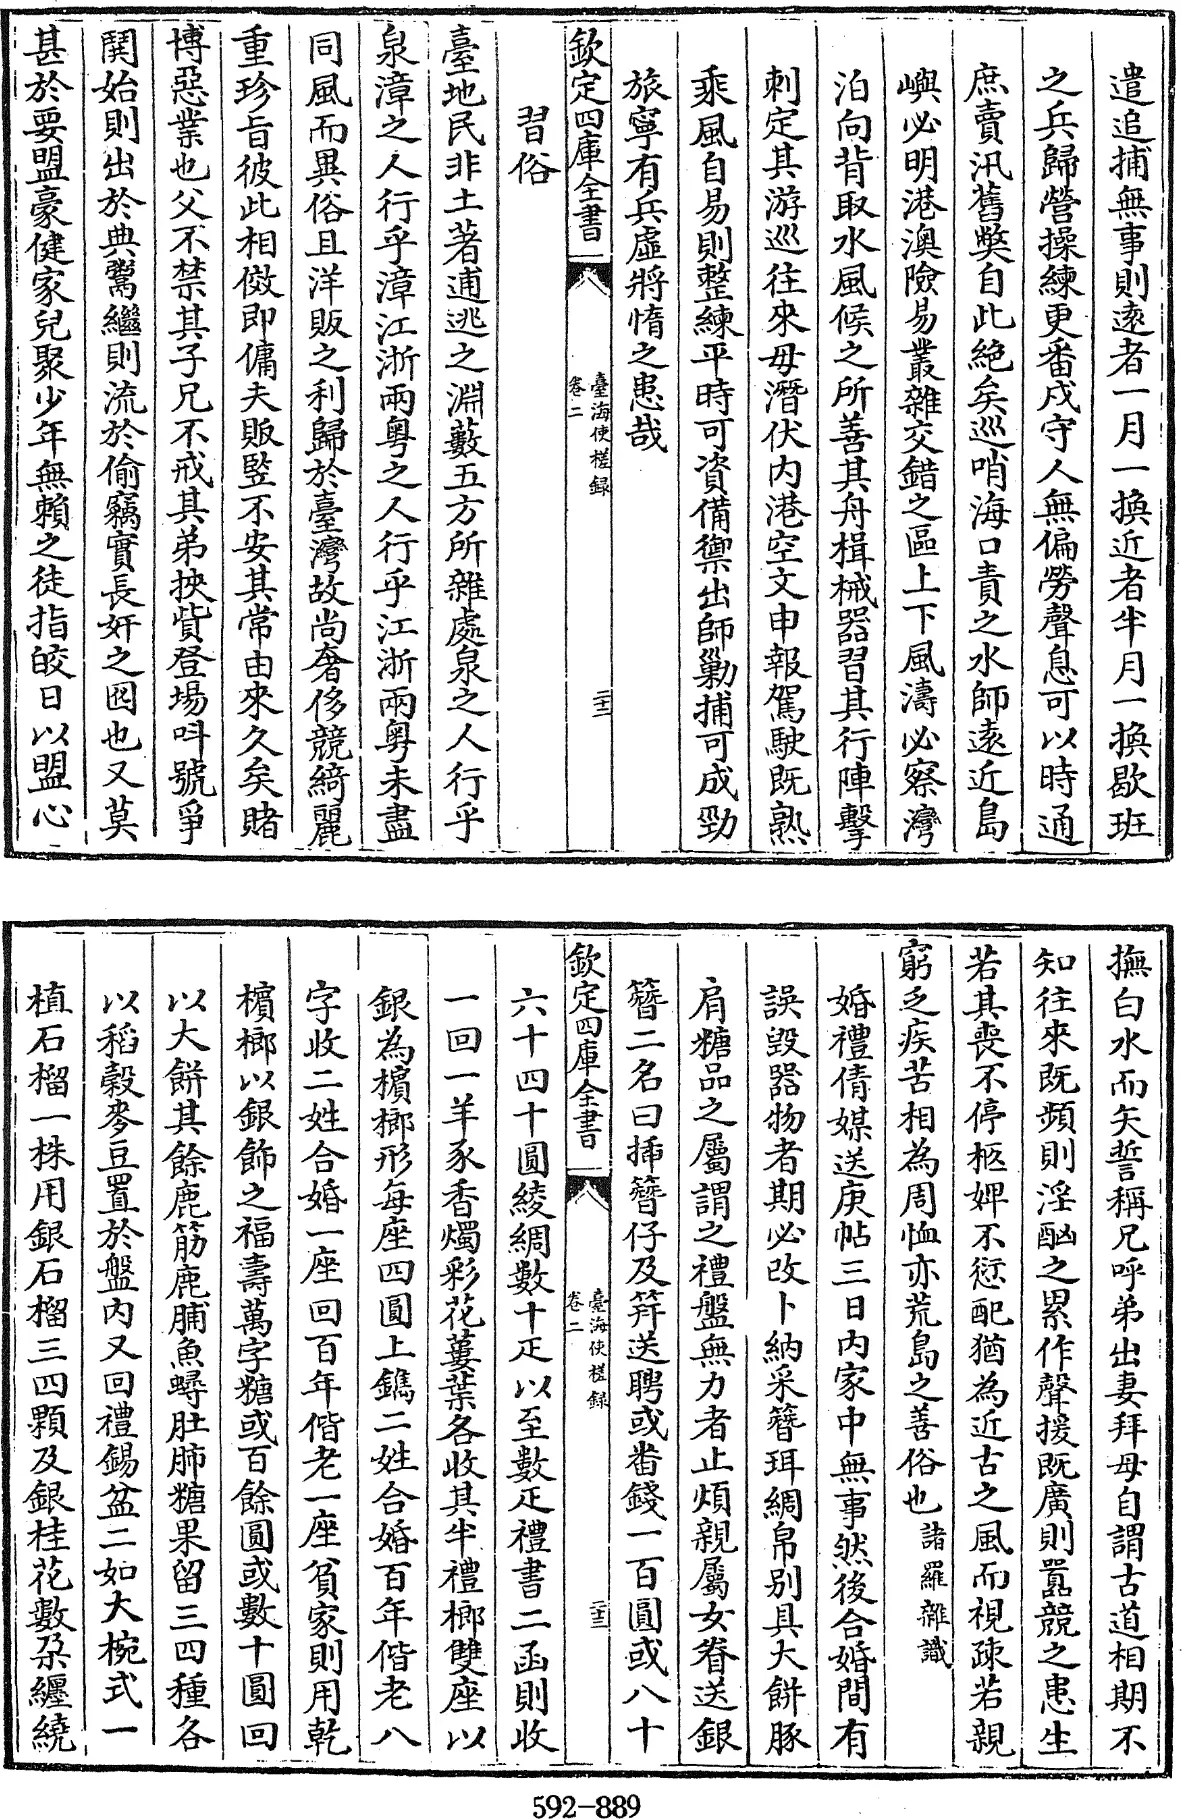 遣追捕無事則逺者一月一換近者半月一換歇班
之兵歸營操練更番戍守人無偏勞聲息可以時通
庶賣汛舊獘自此絶矣巡哨海口責之水師逺近島
嶼必明港澳險易叢雜交錯之區上下風濤必察灣
泊向背取水風候之所善其舟楫械器習其行陣擊
刺定其游巡徃來毋潛伏内港空文申報駕駛既熟
乘風自易則整練平時可資備禦出師勦捕可成勁
旅寧有兵虚將惰之患哉
欽定四庫全書
臺海使槎録
卷二
二十二
習俗
臺地民非土著逋逃之淵藪五方所雜處泉之人行乎
泉漳之人行乎漳江浙兩粤之人行乎江浙兩粤未盡
同風而異俗且洋販之利歸於臺灣故尚奢侈競綺麗
重珍旨彼此相傚即傭夫販竪不安其常由來久矣賭
博惡業也父不禁其子兄不戒其弟挾貲登場呌號爭
鬭始則出於典鬻繼則流於偷竊實長奸之囮也又莫
甚於要盟豪健家兒聚少年無賴之徒指皎日以盟心
撫白水而矢誓稱兄呼弟出妻拜母自謂古道相期不
知往來既頻則淫酗之累作聲援既廣則囂競之患生
若其喪不停柩婢不愆配猶為近古之風而視疎若親
窮乏疾苦相為周恤亦荒島之善俗也諸羅雜識
婚禮倩媒送庚帖三日内家中無事然後合婚間有
誤毀器物者期必改卜納采簪珥綢帛别具大餅豚
肩糖品之屬謂之禮盤無力者止煩親屬女眷送銀
簪二名曰揷簪仔及笄送聘或畨錢一百圓或八十
欽定四庫全書
臺海使槎録
卷二
二十三
六十四十圓綾綢數十疋以至數疋禮書二函則收
一回一羊豕香燭彩花蔞葉各收其半禮榔雙座以
銀為檳榔形每座四圓上鐫二姓合婚百年偕老八
字收二姓合婚一座回百年偕老一座貧家則用乾
檳榔以銀飾之福壽萬字糖或百餘圓或數十圓回
以大餅其餘鹿筋鹿脯魚蟳肚肺糖果留三四種各
以稻穀麥豆置於盤内又回禮錫盆二如大椀式一
植石榴一株用銀石榴三四顆及銀桂花數朶纒繞
592-889